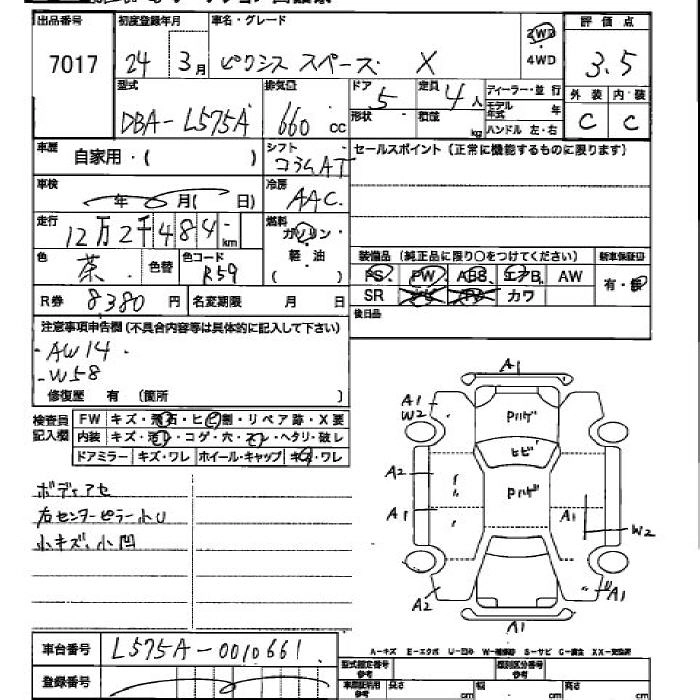 出品番号 初度登録年月 車名・グレード 評価点
7017 24 3月 ピクシス スペース X 2WD 4WD 3.5
型式 排気量 ドア 定員 ディーラー・並行 外装 内・装
DBA-L575A 660cc 5 4人 モデル年式 年 C C
形状 積載 kg ハンドル 左・右
車歴 自家用・( ) シフト コラムAT セールスポイント(正常に機能するものに限ります)
車検 年 月( 日) 冷房 AAC
走行 12万2千484km 燃料 ガソリン・軽・油 ( )
色 茶 色替 色コード R59 装備品(純正品に限り○をつけてください) 新車保証書
PS PW ABS エアB AW 有・無
R券 8,380円 名変期限 月 日 SR ナビ TV カワ
後日品
注意事項申告欄(不具合内容等は具体的に記入して下さい)
・AW14・
・W58
修復歴 有 (箇所 )
検査員記入欄 FW キズ・飛石・ヒビ割・リペア跡・X要
内装 キズ・汚レ・コゲ・穴・スレ・ヘタリ・破レ
ドアミラー キズ・ワレ ホイール・キャップ キズ・ワレ
ボディアセ
右センターピラー小U
小キズ、小凹
A1
A1 W2 Pハゲ
ヒビ
A2 Pハゲ
A1 A1 W2
A2 A1
A1
A-キズ E-エクボ U-凹み W-補修跡 S-サビ C-腐食 XX-交換済
車台番号 L575A-0010661
登録番号
型式指定番号 参考 類別区分番号 参考
長さ cm 幅 cm 高さ cm